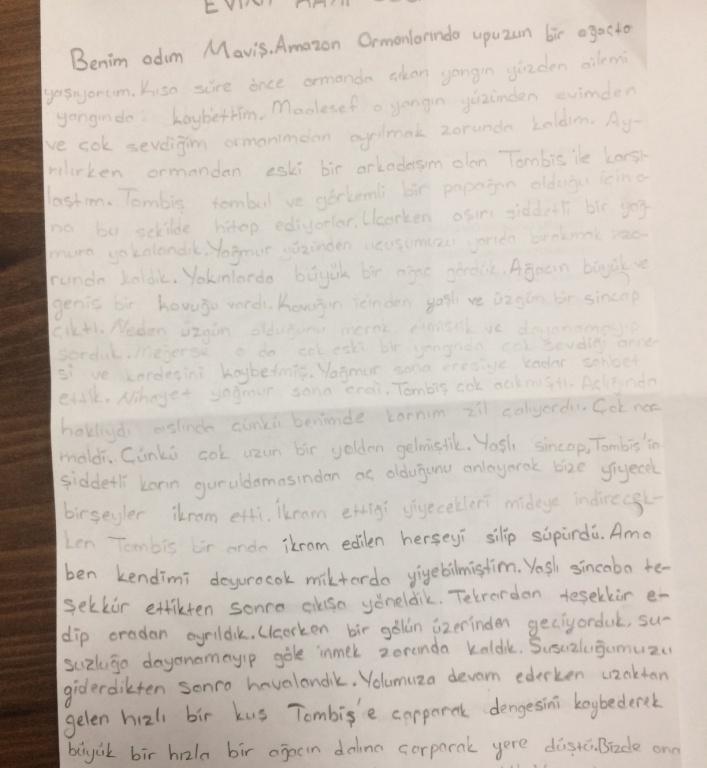 Benim adım Maviş.Amazon Ormanlarında upuzun bir ağaçta
yaşıyorum.Kısa süre önce ormanda çıkan yangın yüzden ailemi
yangında kaybettim. Maalesef o yangın yüzünden evimden
ve çok sevdiğim ormanımdan ayrılmak zorunda kaldım. Ay-
rılırken ormandan eski bir arkadaşım olan Tombiş ile karşı-
laştım. Tombiş tombul ve görkemli bir papağan olduğu için o-
na bu şekilde hitap ediyorlar. Uçarken aşırı şiddetli bir yağ-
mura yakalandık. Yağmur yüzünden uçuşumuzu yarıda bırakmak zo-
runda kaldık. Yakınlarda büyük bir ağaç gördük. Ağacın büyük ve
geniş bir kovuğu vardı. Kovuğun içinden yaşlı ve üzgün bir sincap
çıktı. Neden üzgün olduğunu merak etmiştik ve dayanamayıp
sorduk. Meğerse o da çok eski bir yangında çok sevdiği anne-
si ve kardeşini kaybetmiş. Yağmur sona eresiye kadar sohbet
ettik. Nihayet yağmur sona erdi. Tombiş çok acıkmıştı. Açlığında
haklıydı aslında çünkü benimde karnım zil çalıyordu. Çok nor-
maldi. Çünkü çok uzun bir yoldan gelmiştik. Yaşlı sincap, Tombiş'in
şiddetli karın guruldamasından aç olduğunu anlayarak bize yiyecek
birşeyler ikram etti. İkram ettiği yiyecekleri mideye indirecek-
ken Tombiş bir anda ikram edilen herşeyi silip süpürdü. Ama
ben kendimi doyuracak miktarda yiyebilmiştim. Yaşlı sincaba te-
şekkür ettikten sonra çıkışa yöneldik. Tekrardan teşekkür e-
dip oradan ayrıldık. Uçarken bir gölün üzerinden geçiyorduk, su-
suzluğa dayanamayıp göle inmek zorunda kaldık. Susuzluğumuzu
giderdikten sonra havalandık. Yolumuza devam ederken uzaktan
gelen hızlı bir kuş Tombiş'e çarparak dengesini kaybederek
büyük bir hızla bir ağacın dalına çarparak yere düştü. Bizde ona